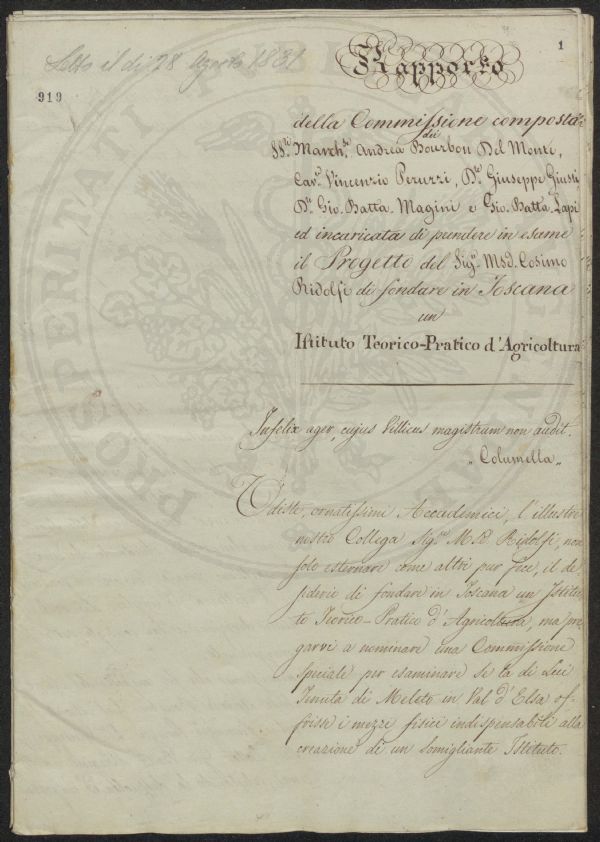 Letto il dì 28 Agosto 1831
1
919
Rapporto
della Commissione composta
dei
SS.ri March.se Andrea Bourbon Del Monte,
Cav.e Vincenzio Peruzzi, D.re Giuseppe Giusti,
D.re Gio. Batta. Magini e Gio. Batta. Lapi
ed incaricata di prendere in esame
il Progetto del Sig.r M.se Cosimo
Ridolfi di fondare in Toscana
un
Istituto Teorico-Pratico d'Agricoltura
Infelix ager, cujus Villicus magistrum non audit.
„ Columella „
Udiste, ornatissimi Accademici, l'illustre
nostro Collega Sig.r M.se Ridolfi, non
solo esternare come altri pur fece, il de
siderio di fondare in Toscana un Istitu
to Teorico-Pratico d'Agricoltura, ma pre
garvi a nominare una Commissione
speciale per esaminare se la di Lui
Tenuta di Meleto in Val d'Elsa of-
frisse i mezzi fisici indispensabili alla
creazione di un somigliante Istituto.
PROSPERITATI PUBLICAE AUGENDAE